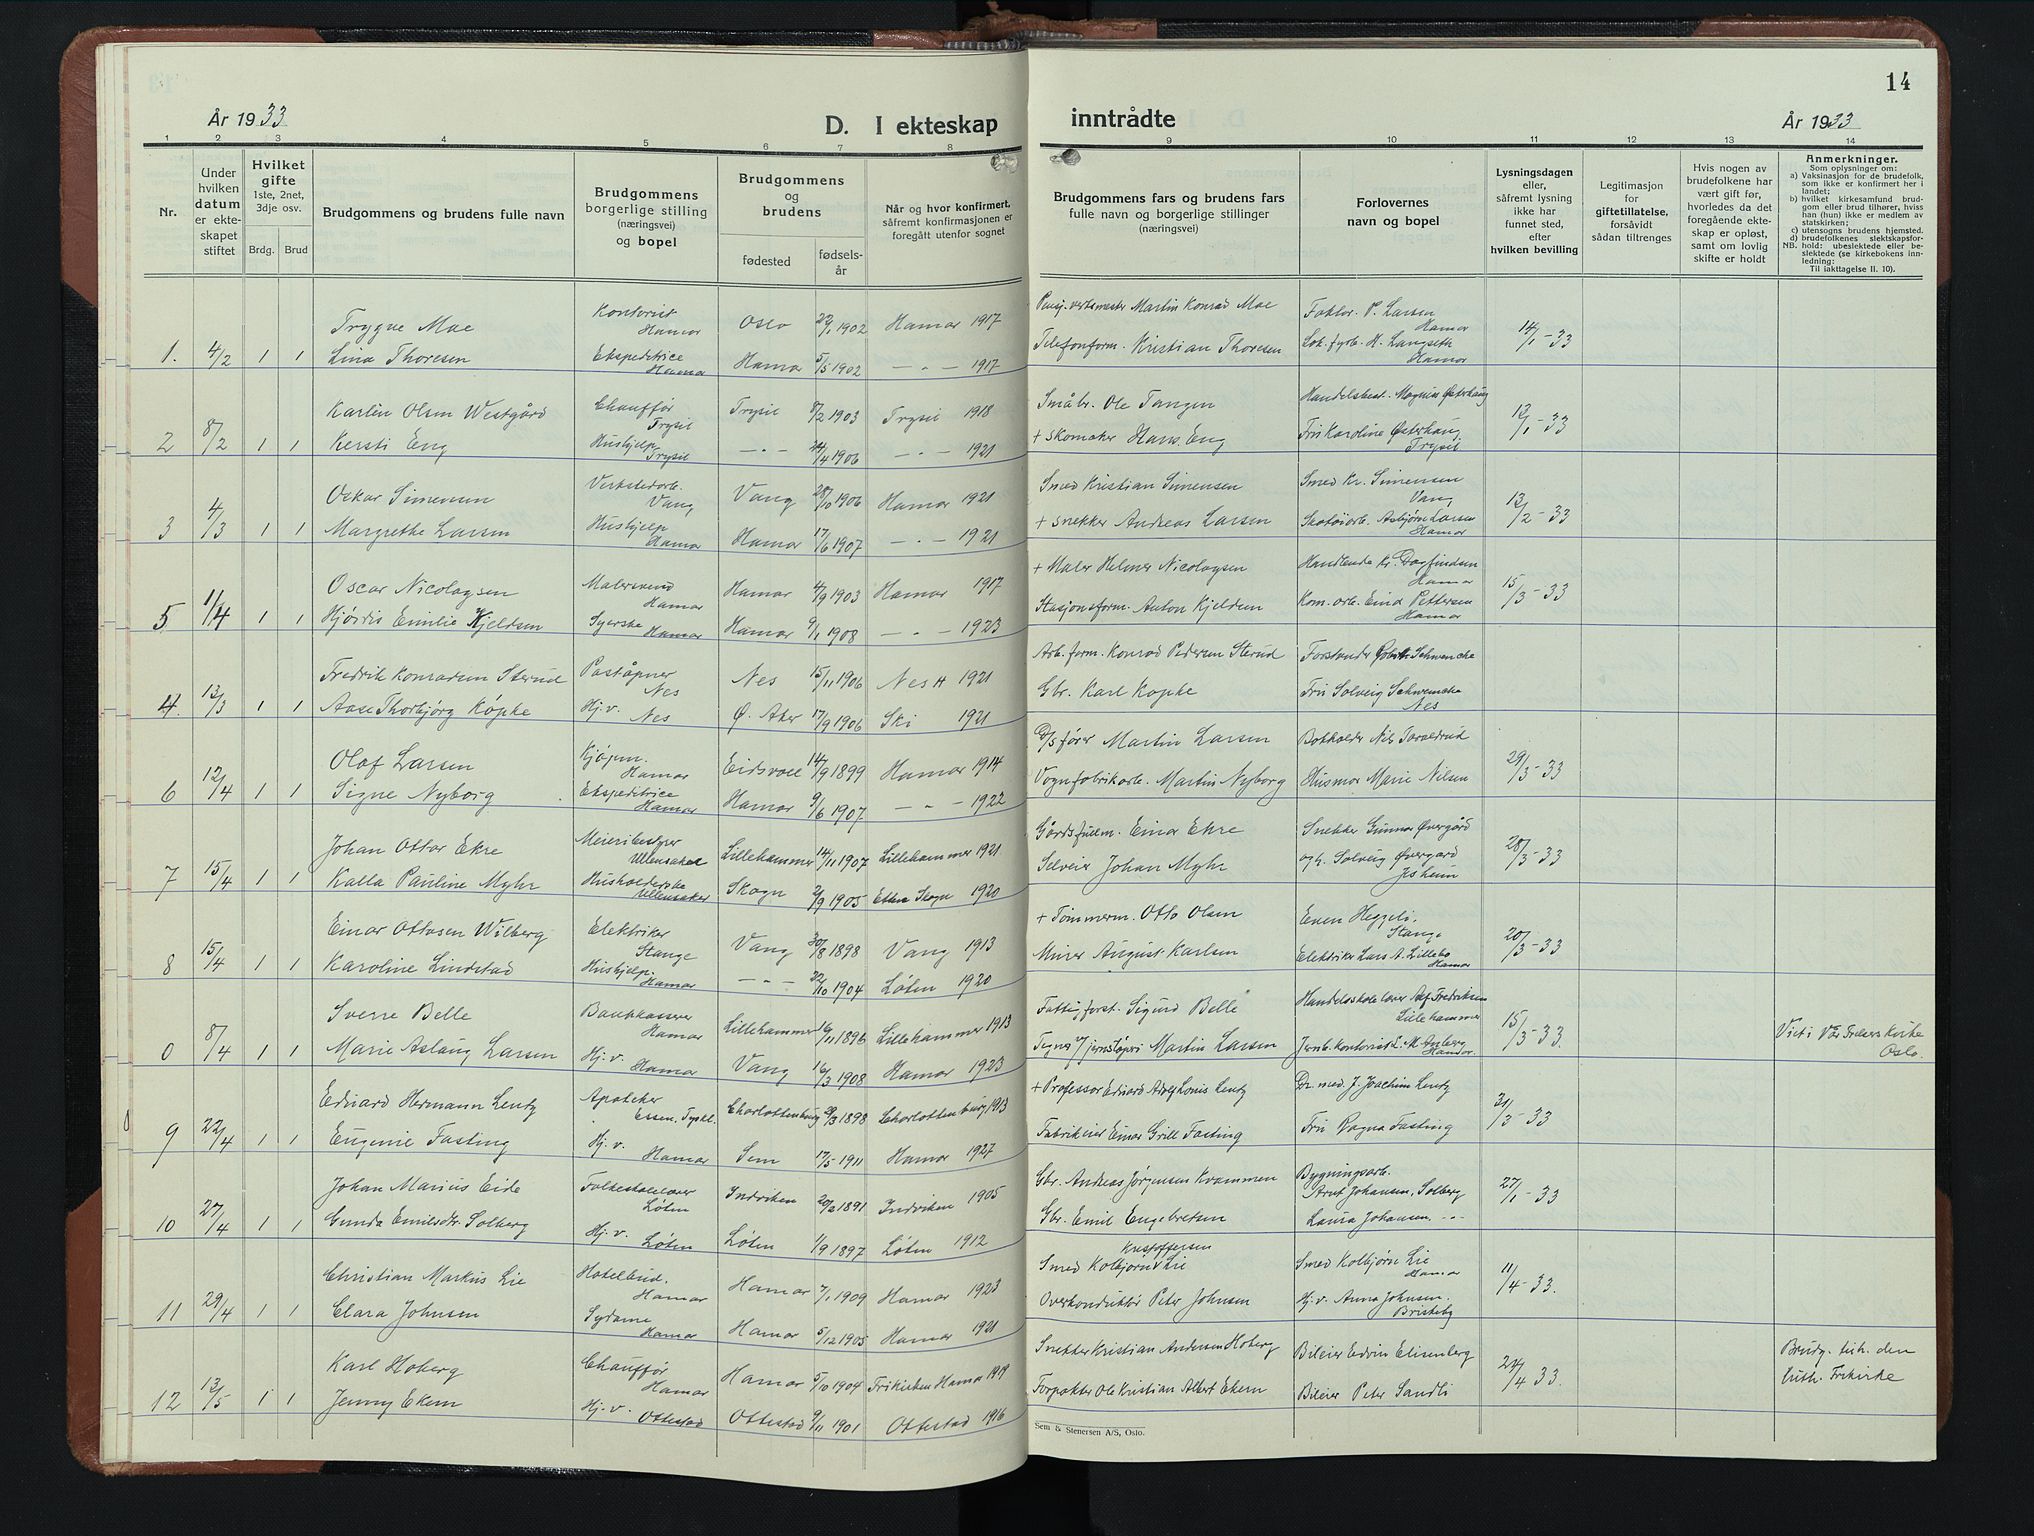 14
År 1933
D. I ekteskap
inntrådte
År 1933
1 2 3 4 5 6 7 8 9 10 11 12 13 14
Nr.
Under
hvilken
datum
er ekte-
skapet
stiftet
Hvilket
gifte
1ste, 2net,
3dje osv.
Brdg. Brud
Brudgommens og brudens fulle navn
Brudgommens
borgerlige stilling
(næringsvei)
og bopel
Brudgommens
og
brudens
fødested
fødsels-
år
Når og hvor konfirmert,
såfremt konfirmasjonen er
foregått utenfor sognet
Brudgommens fars og brudens fars
fulle navn og borgerlige stillinger
(næringsvei)
Forlovernes
navn og bopel
Lysningsdagen
eller,
såfremt lysning
ikke har
funnet sted,
efter
hvilken bevilling
Legitimasjon
for
giftetillatelse,
forsåvidt
sådan tiltrenges
Hvis nogen av
brudefolkene har
vært gift før,
hvorledes da det
foregående ekte-
skap er opløst,
samt om lovlig
skifte er holdt
Anmerkninger.
Som oplysninger om:
a) Vaksinasjon for de brudefolk,
som ikke er konfirmert her i
landet;
b) hvilket kirkesamfund brud-
gom eller brud tilhører, hviss
han (hun) ikke er medlem av
statskirken;
c) utensogns brudens hjemsted.
d) brudefolkenes slektskapsfor-
NB. hold: ubeslektede eller be-
slektede (se kirkebokens inn-
ledning:
Til iakttagelse II. 10).
Trygve Moe Kontorist Hamar Oslo 1902 Hamar 1917 Martin Konrad Moe Faktor P. Larsen Hamar
1. 4/2 1 1 Lina Thoresen Ekspeditrice Hamar Hamar 5/5 1902 — " — 1917 Telefonform. Kristian Thoresen Lok.fyrb. H. Langseth Hamar 14/1-33
Karlén Olsen Westgård Chauffør Trysil Trysil 8/2 1903 Trysil 1918 Småbr. Ole Tangen Handelsbest. Magnus Østerhaug
2 8/2 1 1 Kersti Eng Hushjelp Trysil — " — 24/4 1906 — " — 1921 + Skomaker Hans Eng Fru Karoline Østerhaug Trysil 12/1-33
Oskar Simensen Verkstedarb. Vang Vang 28/10 1906 Hamar 1921 Smed Kristian Simensen Smed Kr. Simensen Vang
3 4/3 1 1 Margrethe Larsen Hushjelp Hamar Hamar 17/6 1907 — " — 1921 + Snekker Andreas Larsen Skotøiarb. Asbjørn Larsen Hamar 13/2-33
Oscar Nicolaysen Malersvend Hamar Hamar 4/9 1903 Hamar 1917 + Maler Helmer Nicolaysen Handlende Kr. Dagfindsen Hamar
5 1/4 1 1 Hjørdis Emilie Kjeldsen Syerske Hamar Hamar 9/1 1908 — " — 1923 Stasjonsform. Anton Kjeldsen Kom.arb. Eind Pettersen Hamar 15/3-33
Fredrik Konradsen Sterud Poståpner Nes Nes 15/11 1906 Nes H 1921 Arb.form. Konrad Pedersen Sterud Forstander Schwencke
4. 13/3 1 1 Aase Thorbjørg Køpke Hj.v. Nes Ø. Aker 17/9 1906 Ski 1921 Gbr. Karl Køpke Fru Solveig Schwencke Nes
Olaf Larsen Kjøpm. Hamar Eidsvoll 14/9 1899 Hamar 1914 D/S fører Martin Larsen Bokholder Nils
6 12/4 1 1 Signe Nyborg Ekspeditrice Hamar Hamar 9/6 1907 — " — 1922 Vognfabrikarb. Martin Nyborg Husmor Marie Nilsen 29/3-33
Johan Ottar Ekre Meieribestyrer Ullensaker Lillehammer 14/11 1907 Lillehammer 1921 Gårdsfullm. Einar Ekre Snekker Gunnar Øvergård
7 15/4 1 1 Kalla Pauline Myhr Husholderske Ullensaker Skogn 2/9 1905 Ekne Skogn 1920 Selveier Johan Myhr og h. Solveig Øvergård Jesheim 28/3-33
Einar Ottosen Wilberg Elektriker Stange Vang 30/8 1898 Vang 1913 + Tømmerm. Otto Olsen Even Heggeli, Stange
8 15/4 1 1 Karoline Lindstad Hushjelp. Hamar — " — 22/10 1904 Løten 1920 Murer August Karlsen Elektriker Lars A. Lillebo Hamar 20/3-33
Sverre Belle Bankkasserer Hamar Lillehammer 16/11 1896 Lillehammer 1913 Fattigforst. Sigurd Belle Handelsskolelærer Alf Fredriksen Lillehammer
0 8/4 1 1 Marie Aslaug Larsen Hj.v. Hamar Vang 16/3 1908 Hamar 1923 Tegner v/ jernstøperi Martin Larsen Jernb.kontorist L. M. Hamar. 15/3-33. Viet i Vår Frelsers Kirke Oslo.
Eduard Hermann Lentz Apoteker Essen, Tyskl. Charlottenburg 1898 Charlottenburg 1913 + Professor Eduard Adolf Louis Lentz Dr. med. J. Joachim Lentz
9 22/4 1 1 Eugenie Fasting Hj.v. Hamar Sem 17/5 1911 Hamar 1927 Fabrikeier Einar Grill Fasting Fru Ragna Fasting 31/3-33
Johan Marius Eide Folkeskolelærer Løten Indviken 20/2 1891 Indviken 1905 Gbr. Andreas Jørgensen Kvammen Bygningsarb. Arnt Johansen, Solberg
10 27/4 1 1 Gunda Emilsdtr. Solberg Hj.v. Løten Løten 1/9 1897 Løten 1912 Gbr. Emil Engebretsen Laura Johansen, — " — 27/1-33
Christian Markus Lie Hotelbud. Hamar Hamar 7/1 1909 Hamar 1923 Smed Kolbjørn Kristoffersen Lie Smed Kolbjørn Lie Hamar
11 29/4 1 1 Clara Johnsen Sydame Hamar Hamar 5/12 1905 Hamar 1921 Overkonduktør Peter Johnsen Hj.v. Anna Johnsen. Briskeby 11/4-33.
Karl Hoberg Chauffør Hamar Hamar 5/10 1904 Frikirken Hamar 1919 Snekker Kristian Andersen Hoberg Bileier Edvin Elisenberg Brudg. tilh. den
12 13/5 1 1 Jenny Ekern Hj.v. Ottestad Ottestad 9/11 1901 Ottestad 1916 Forpakter Ole Kristian Albert Ekern Bileier Peter Sandli 24/4 33. luth. Frikirke
Sem & Stenersen A/S, Oslo.